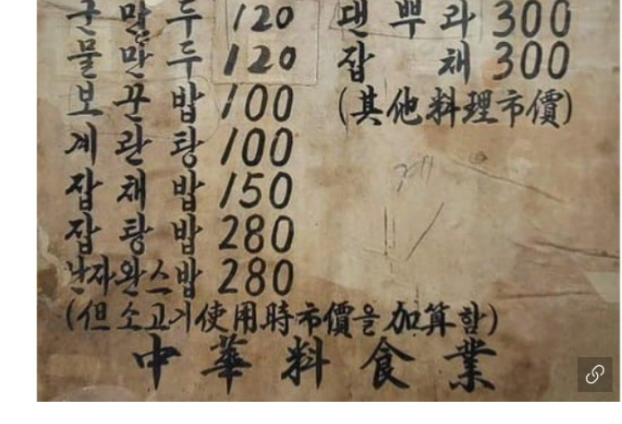 군만두 120
물만두 120
보꾼밥 100
계란탕 100
잡채밥 150
잡탕밥 280
난자완스밥 280
(但 소고기使用時市價을 加算함)
댄뿌라 300
잡채 300
(其他料理市價)
中華料食業